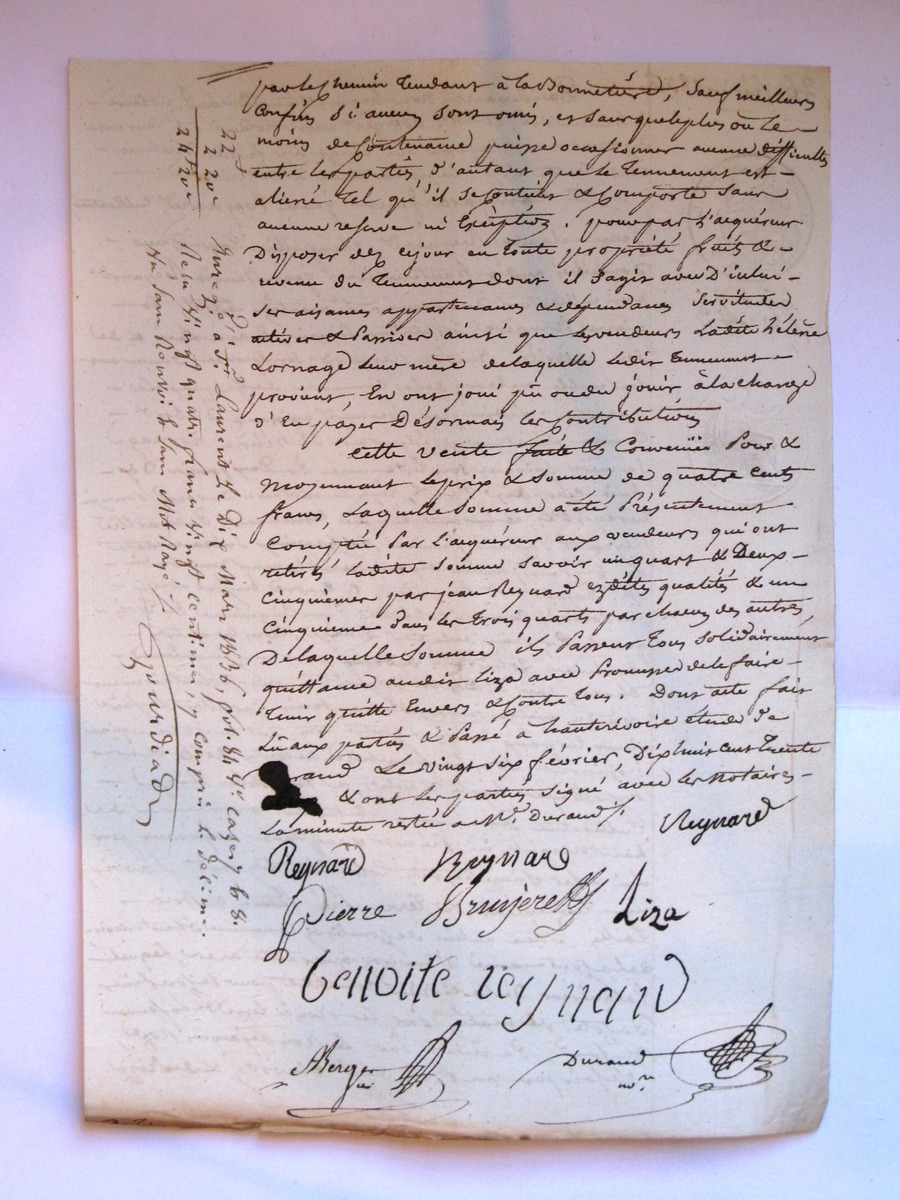 par le chemin tendant à la Bonnetière, sauf meilleurs
confins si aucuns sont omis, et sans que le plus ou le
moins de contenance puisse occasionner aucune difficultés
entre les partës, d'autant que le tennement est
aliené tel qu'il se contient & comporte sans
aucune reserve ni Exception. pour par l'acquéreur
Disposer dez cejour en toute propriété fruits &
revenu du tennement dont il s'agit avec
ses aisances appartenances & dépendances servitudes
actives & Passives ainsi que les vendeurs Ladite hélène
Lornage leur mère de laquelle ledit tennement
provient, En ont joui pu ou du jouir à la charge
d'En payer Désormais les Contributions
Cette vente faite & Convenüe Pour &
moyennant le prix & somme de quatre cents
francs, Laquelle somme a été Présentement
Compté Par l'acquéreur aux vendeurs qui ont
retiré ladite somme savoir un quart & Deux
Cinquièmes par jean Reynard ezdites qualités & un
Cinquième dans les trois quarts par chacun des autres,
De laquelle somme ils Passent tous solidairement
quittance audit Liza avec Promesse de le faire
tenir quitte Envers & Contre tous. Dont acte fait
Lû aux partës & Passé à hauterivoire étude de
Durand Le vingt six février, Dix huit cent trente
& ont les parties signé avec les Notaires
La minute restée a Me. Durand /.
Reynard
Reynard Reynard
Pierre Bruyere Liza
benoite reynard
Berger
Durand
no.re
22f
2 20
24f 20c
Enreg. à St. Laurent le Dix Mars 1836, fol. 84 Vo. cases 7 & 8.
Reçu vingt quatre francs vingt centimes, y compris le décime.
Ni sans Renvoi & sans Mot Rayé /.